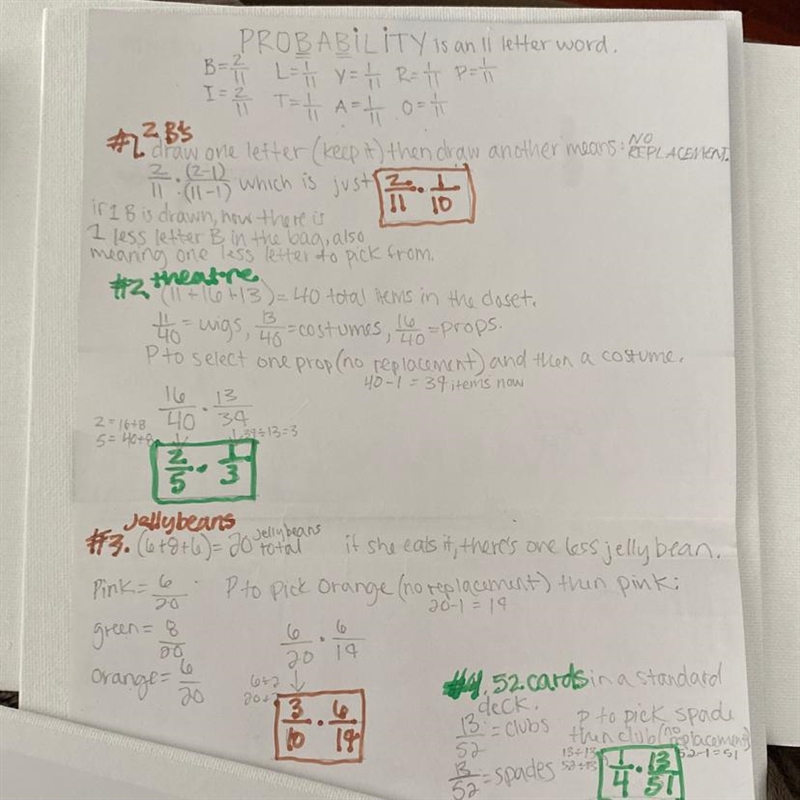 PROBABILITY is an 11 letter word.
B=2/11 L=1/11 Y=1/11 R=1/11 P=1/11
I=2/11 T=1/11 A=1/11 O=1/11
#1 2 B's
draw one letter (keep it) then draw another means: NO REPLACEMENT.
2/11 · (2-1)/(11-1) which is just 2/11 · 1/10
if 1 B is drawn, now there is
1 less letter B in the bag, also
meaning one less letter to pick from.
#2 theatre
(11+16+13)=40 total items in the closet.
11/40=wigs, 13/40=costumes, 16/40=props.
P to select one prop (no replacement) and then a costume.
40-1=39 items now
16/40 · 13/39
2=16÷8
5=40÷8
39÷13=3
2/5 · 1/3
Jellybeans
#3. (6+8+6)=20 jellybeans total if she eats it, there's one less jelly bean.
Pink=6/20 · P to pick orange (no replacement) then pink:
20-1=19
green=8/20 6/20 · 6/19
orange=6/20
6÷2
20÷2
3/10 · 6/19
#4. 52 cards in a standard
deck.
13/52=clubs
13/52=spades
P to pick spade
then club (no replacement)
13÷13
52÷13
52-1=51
1/4 · 13/51